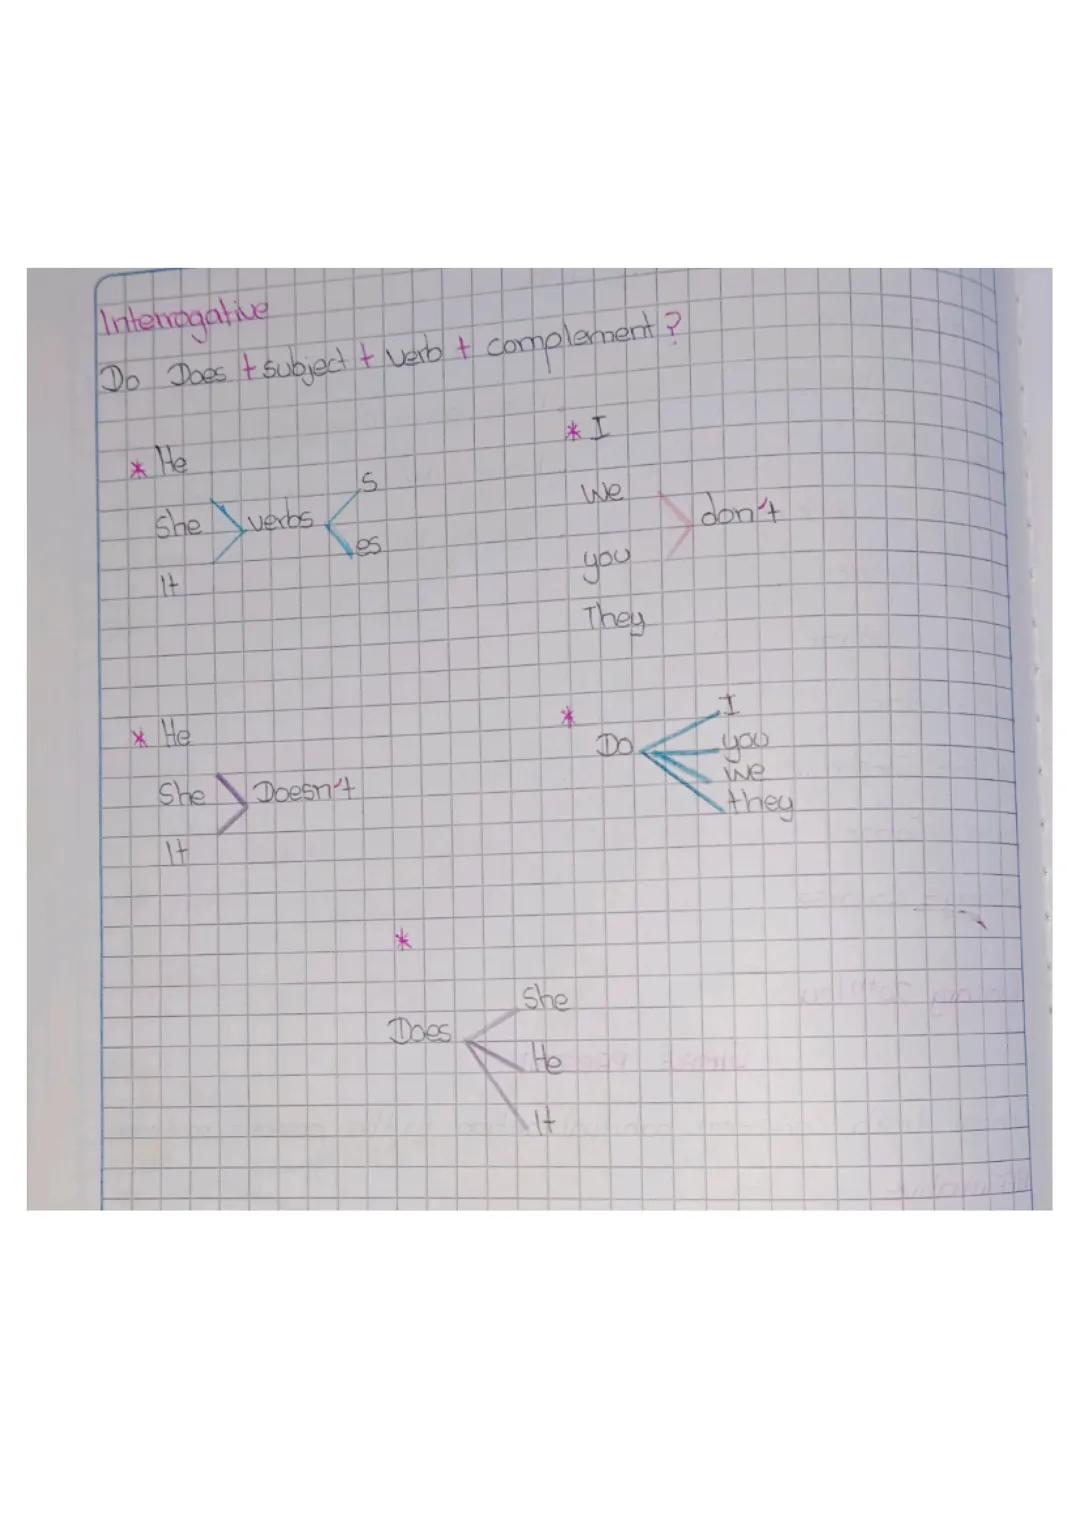 Interrogative
Do Does + subject + verb + complement?
* He
She verbs s
es
It
* I
We
you don't
They
* He
She Doesn't
It
* Do I
you
we
they
*
Does She
He
It